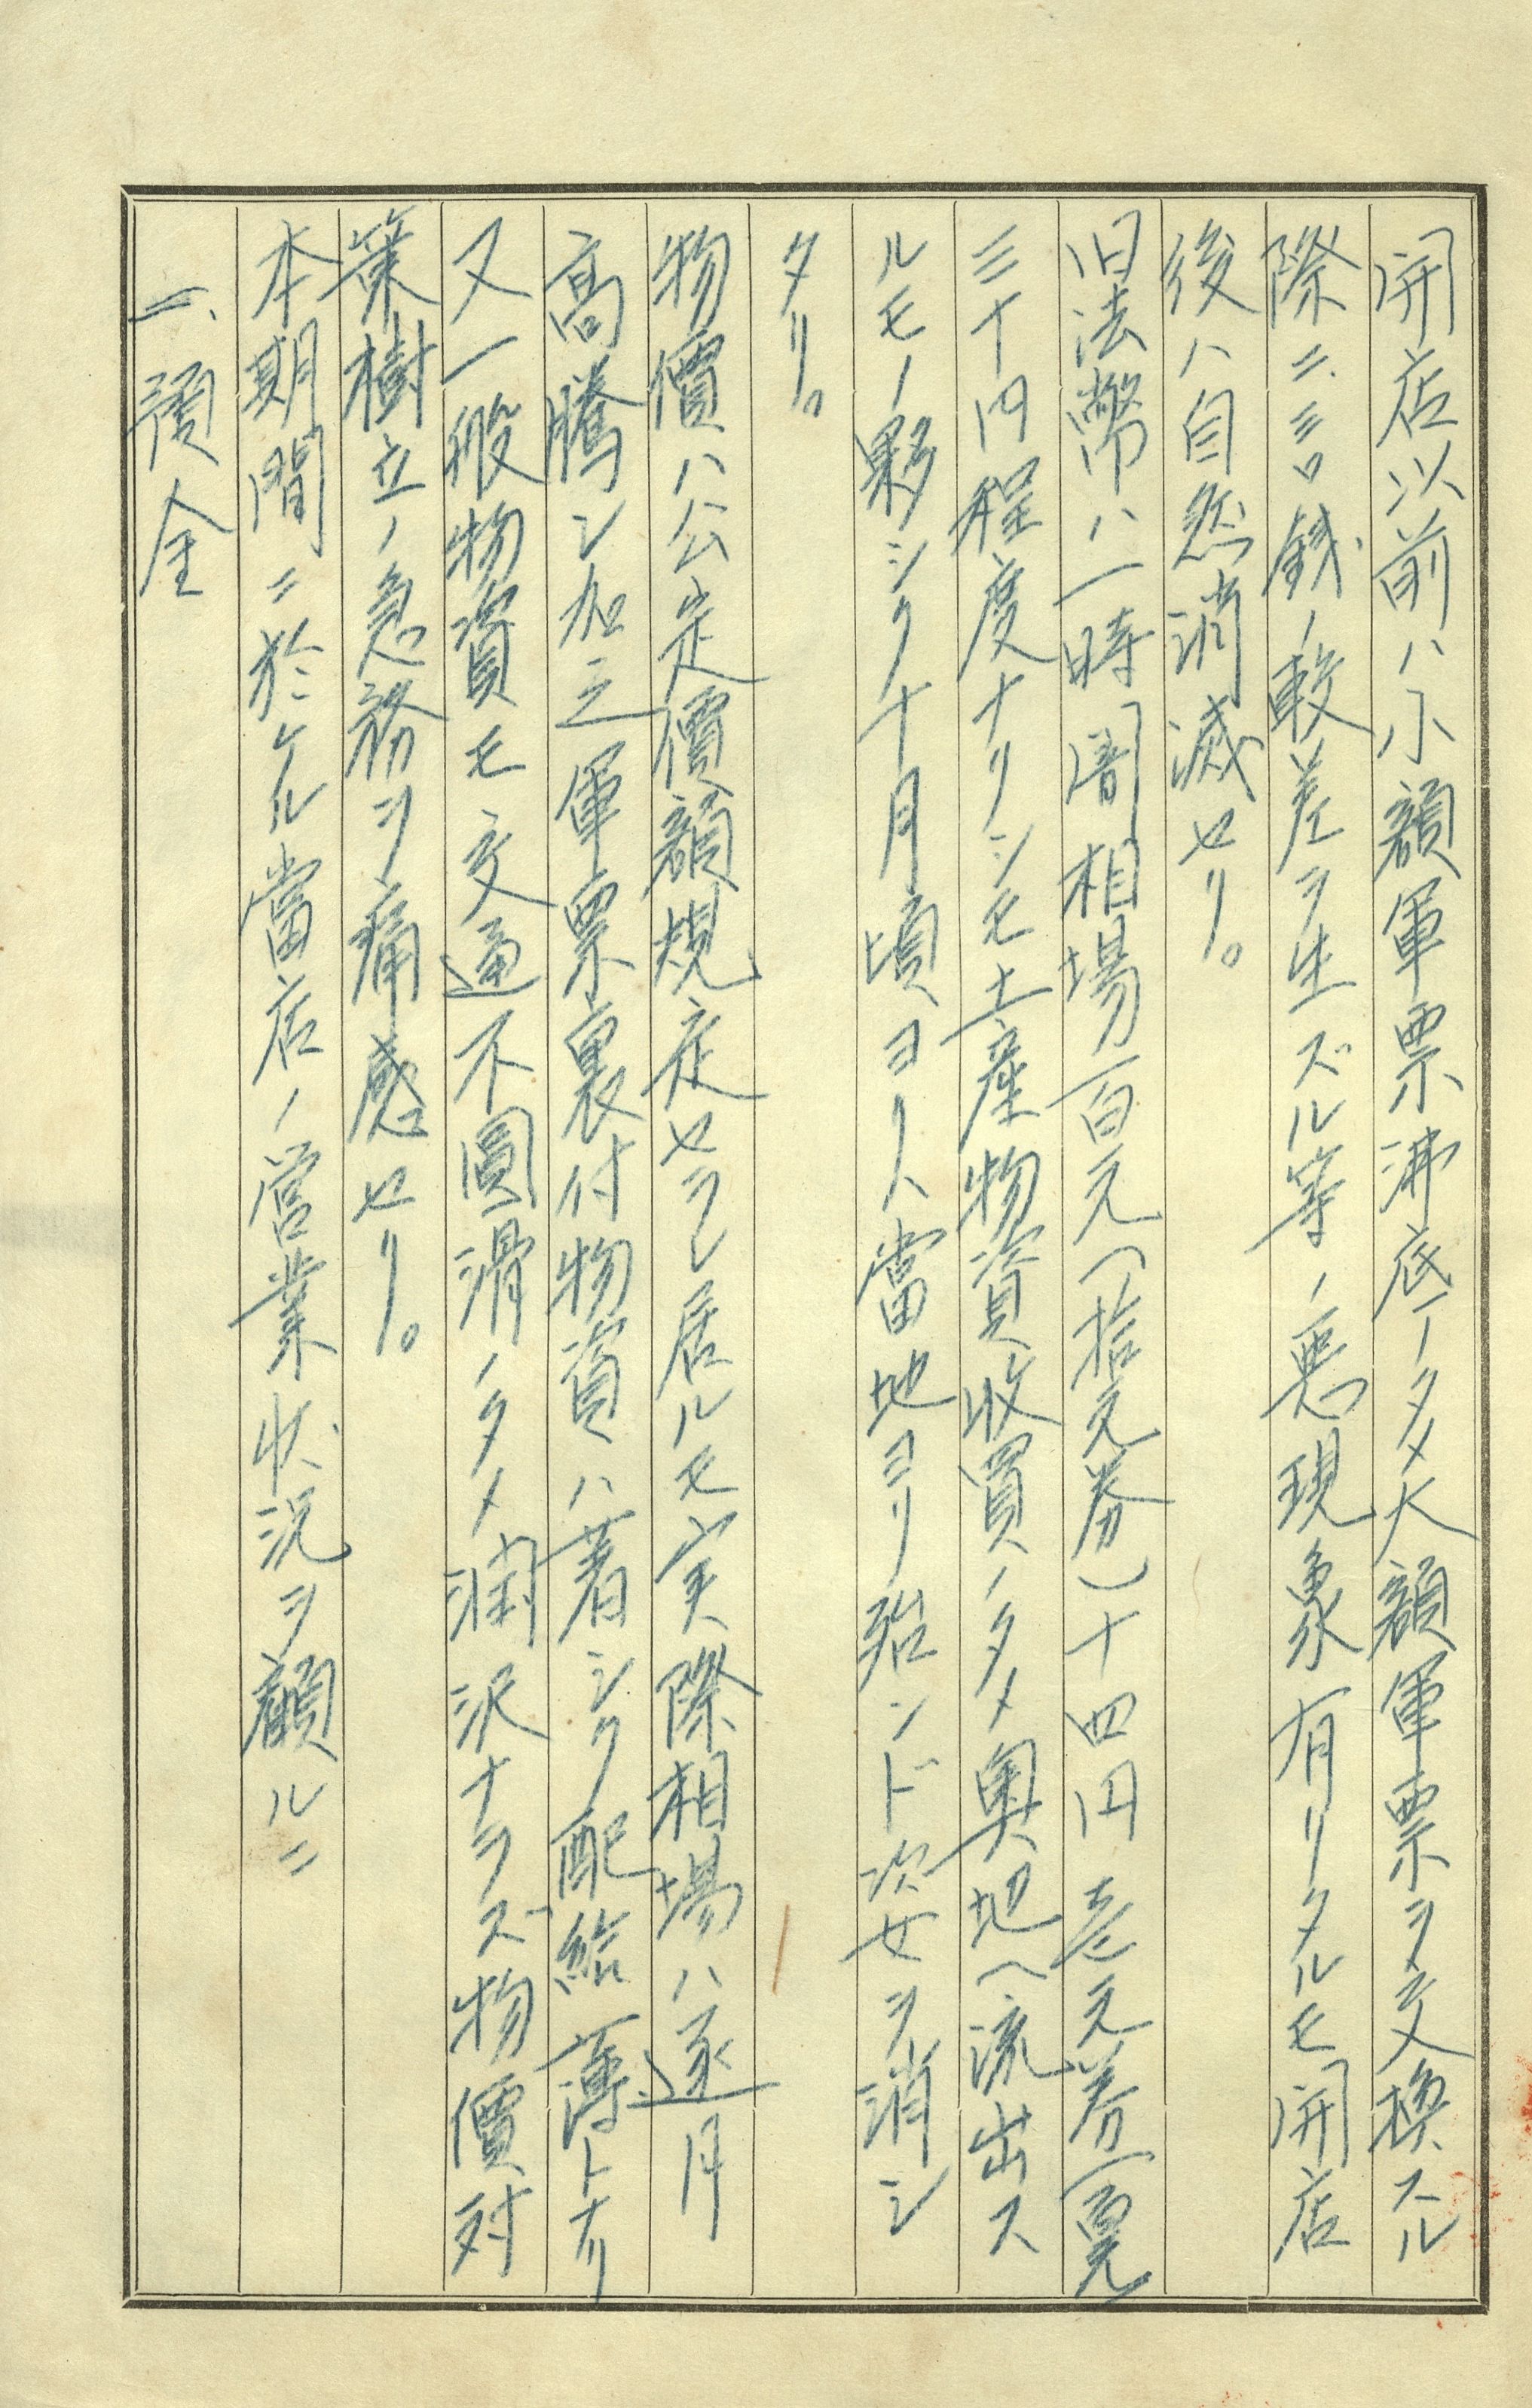 開店以前ハ小額軍票沸底ノタメ大額軍票ヲ交換スル
際二、三口銭ノ較差ヲ生ズル等ノ悪現象有リタルモ開店
後ハ自然消滅セリ。
旧法幣ハ一時闇相場一百元(拾元券)十四円壱元券一百元
三十円程度ナリシモ土産物資收買ノタメ奥地ヘ流出ス
ルモノ夥シク十月頃ヨリハ當地ヨリ殆ンド姿ヲ消シ
タリ。
物價ハ公定價額規定セラレ居ルモ実際相場ハ逐月
高騰シ加之軍票裏付物資ハ著シク配給薄トナリ
又一般物資モ交通不圓滑ノタメ潤沢ナラズ物價対
策樹立ノ急務ヲ痛感セリ。
本期間ニ於ケル當店ノ営業状況ヲ顧ルニ
一、預金